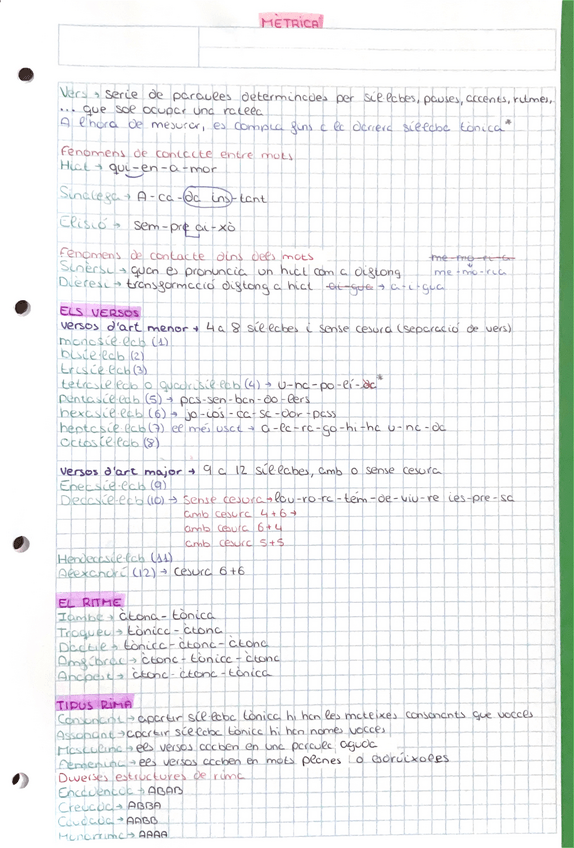 MÈTRICA
Vers → serie de paraules determinades per síl·labes, pauses, accents, ritmes,
... que sol ocupar una ratlla
A l'hora de mesurar, es compta fins a la darrera síl·laba tònica*
Fenòmens de contacte entre mots
Hiat → qui-en-a-mor
Sinalefa → A-ca-da ins-tant
Elisió → sem-pre ai-xò
Fenòmens de contacte dins dels mots
Sinèresi → quan es pronuncia un hiat com a diftong me-mò-ria
Dièresi → transformació diftong a hiat → a-i-gua
ELS VERSOS
versos d'art menor → 4 a 8 síl·labes i sense cesura (separació de vers)
monosíl·lab (1)
bisíl·lab (2)
trisíl·lab (3)
tetrasíl·lab o quadrisíl·lab (4) → u-na-po-li-da*
pentasíl·lab (5) → pas-sen-ban-do-lers
hexasíl·lab (6) → jo-sós-ca-sa-dor-pass
heptasíl·lab (7) el més usat → a-la-ra-go-hi-ha u-na-da
octosíl·lab (8)
versos d'art major → 9 a 12 síl·labes, amb o sense cesura
Eneasíl·lab (9)
Decasíl·lab (10) → sense cesura →
amb cesura 4+6 →
amb cesura 6+4
amb cesura 5+5
Hendecasíl·lab (11)
Alexandrí (12) → cesura 6+6
EL RITME
Iambe → àtona - tònica
Troqueu → tònica - àtona
Dàctil → tònica - àtona - àtona
Amfíbrac → àtona - tònica - àtona
Anapest → àtona - àtona - tònica
TIPUS RIMA
Consonant → apartir síl·laba tònica hi han les mateixes consonants que vocals
Assonant → apartir síl·laba tònica hi han només vocals
Masculina → els versos acaben en una paraula aguda
Femenina → els versos acaben en mots planes o esdrúixoles
Diverses estructures de rima
Encadenada → ABAB
Creuada → ABBA
Caudada → AABB
Monorima → AAAA